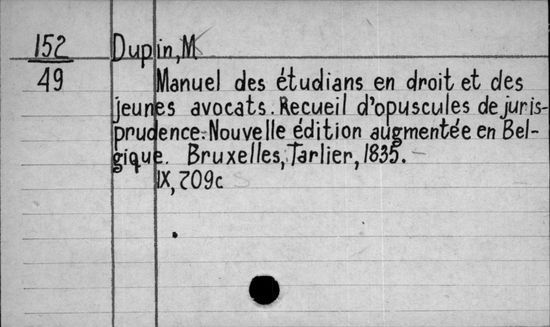 152
Dupin, M
49
Manuel des étudians en droit et des
jeunes avocats. Recueil d'opuscules de juris-
prudence. Nouvelle édition augmentée en Bel-
gique. Bruxelles, Tarlier, 1835.
IX, 709c